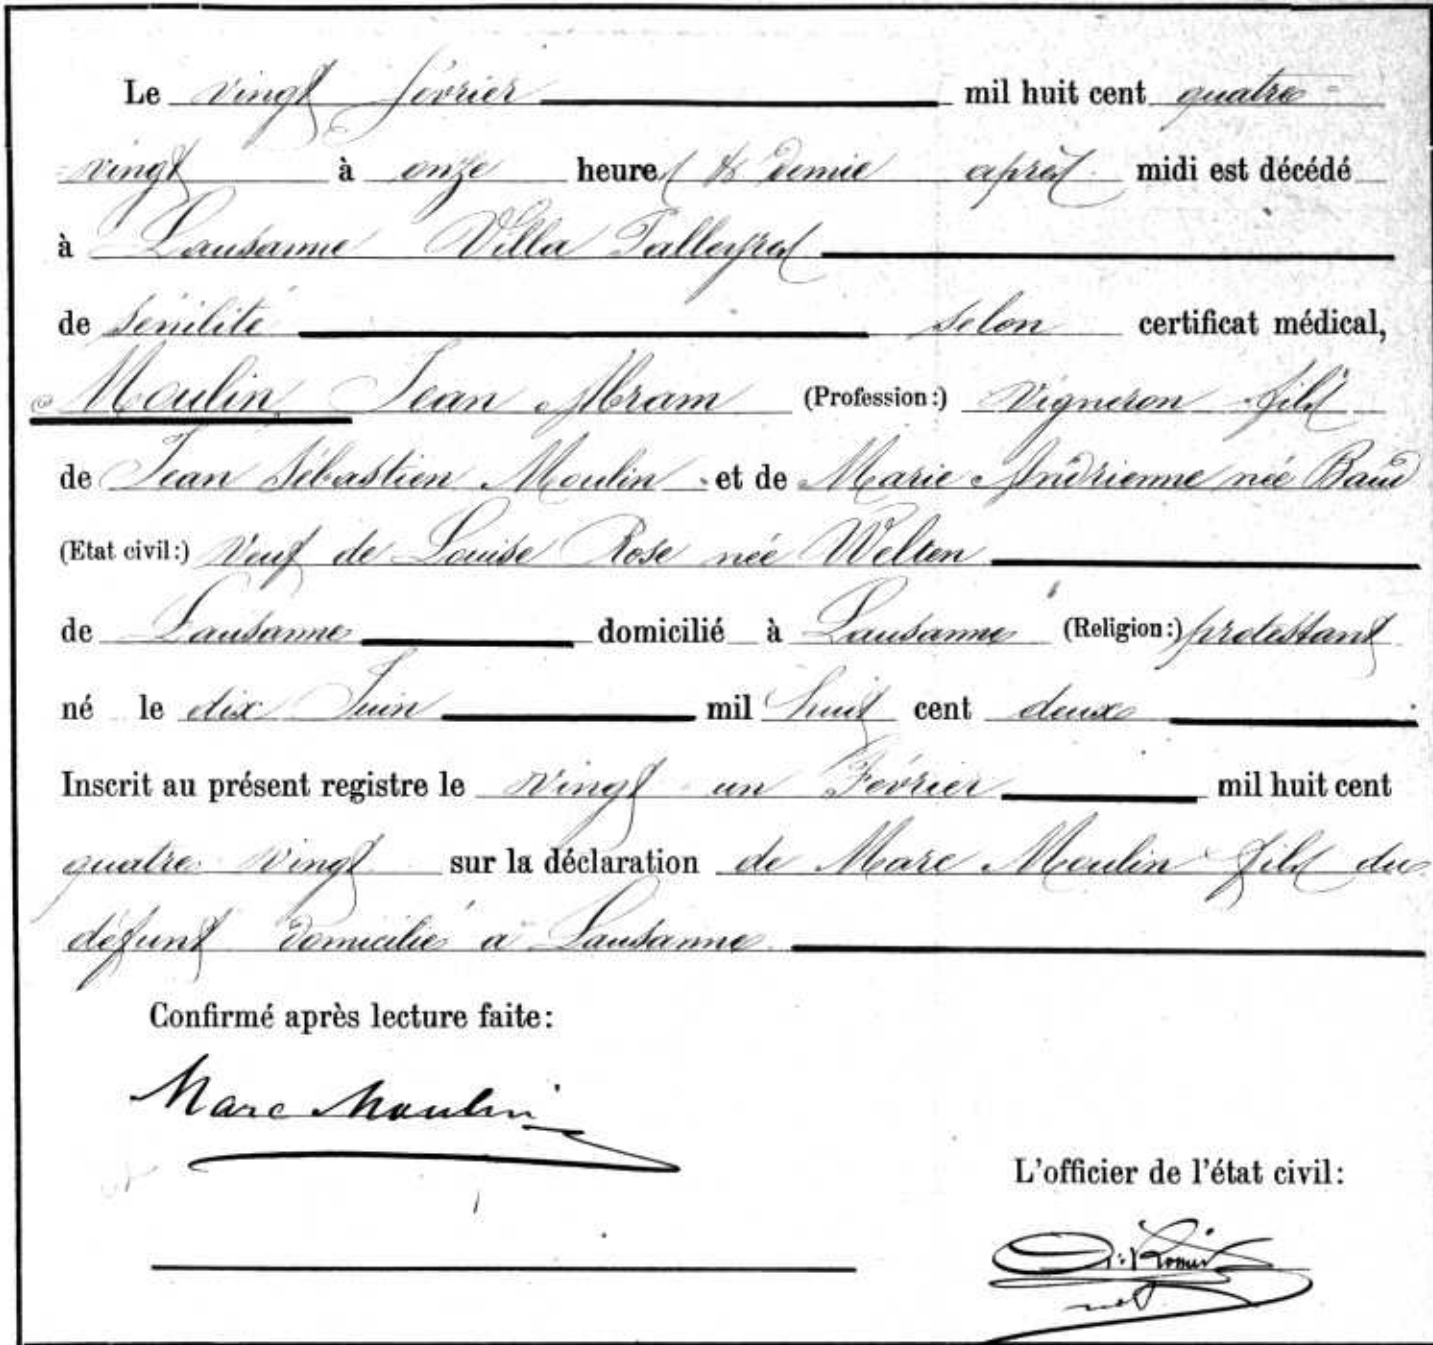 Le vingt février mil huit cent quatre-
vingt à onze heures & demie après midi est décédé
à Lausanne Villa Talleyres
de sénilité selon certificat médical,
Moulin, Jean Abram (Profession:) Vigneron fils
de Jean Sébastien Moulin et de Marie Andrienne née Baud
(Etat civil:) Veuf de Louise Rose née Welten
de Lausanne domicilié à Lausanne (Religion:) protestant
né le dix Juin mil huit cent deux
Inscrit au présent registre le vingt un Février mil huit cent
quatre vingt sur la déclaration de Marc Moulin fils du
défunt domicilié à Lausanne
Confirmé après lecture faite:
Marc Moulin
L'officier de l'état civil: